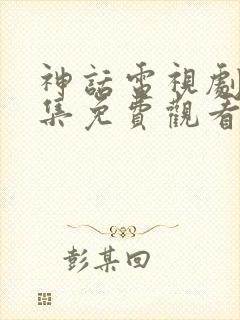 神話電視劇
集免費觀看
彭某回